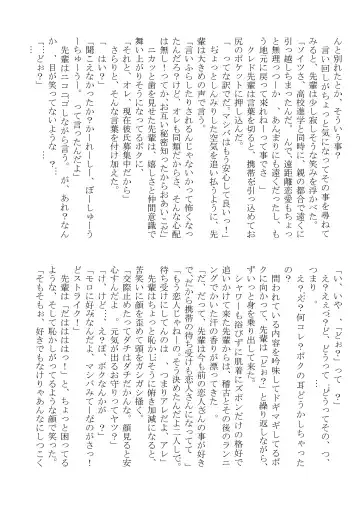 んと別れたとか、そういう事？
　言い回しがちょっと気になってその事を尋ねて
みると、先輩は少し寂しそうな笑みを浮かべた。
「ソイツさ、高校進学と同時に、親の都合で遠くに
引っ越しちまったんだ。んで、遠距離恋愛もちょっ
と無理っつーか…。あんまりにも遠くだったし、も
う地元に戻って来れねーって事でさ…」
　クレド先輩は言葉を切ると、携帯を引っ込めてお
尻のポケットに押し込んだ。
「って な訳で！　マシバはもう安心して良いっ！」
　ちょっとしんみりした空気を追い払うように、先
輩は大きめの声で言う。
「言いふらしたりされるんじゃないかって怖くなっ
たんだろ？けど、オレも同類だからさ、そんな心配
は無し！ってかお互い秘密知ったからおあいこだ」
　ニカッと歯を見せた先輩は、嬉しさと仲間意識で
舞い上がりそうになってるボクに、
「それと、オレ、現在彼氏募集中だから」
　さらりと、そんな言葉を付け加えた。
「…はい？」
「聞こえなかったか？かーれーしー、ぼーしゅうち
ゅーちゅーう。って言ったんだよ」
　先輩はニコニコしながら言う。が、あれ？なん
か、目が笑ってないような…？
「…どぉ？」
「い、いや、『どぉ？』って…？」
　え？ええっと、どうって…、どうってその、つ、
つまり…。
　え？え？何コレ？ボクの耳どうかしちゃった？
　問われている内容を吟味してドギマギしてるボ
クに向かって、先輩は「どぉ？」と繰り返しながら、
ずいっと身を乗り出して来た。
　シャワーも浴びずに肌着にズボンだけの格好で
追いかけて来た先輩からは、稽古とその後のランニ
ングでかいた汗の香りが漂ってきて…。
「だ、だって、先輩は今も前の恋人さんの事が好き
で…、だから携帯の待ち受けも恋人さんになってて」
「もう恋人じゃねーの。そう決めたんだよ二人して。
待ち受けにしてんのは…、つまりアレだよ、アレ」
　先輩はちょっと恥かしそうに俯き加減になって、
苦笑いに顔を歪めて頭をガシガシ掻く。
「交際止めたってダチはダチだかな。顔見ると安
心すんだよ…。まぁ、元気が出るお守りってヤツ？」
「け、けど…、え？ぼ、ボクなんかが…？」
「モロに好みなんだよ、マシバみてーなのがさっ！
どストライク！」
　先輩は「だはははっ！」と、ちょっと困ってる
ような、そして恥かしがってるような顔で笑った。
「そもそもお、好きでもなけりゃあんなにしっこく